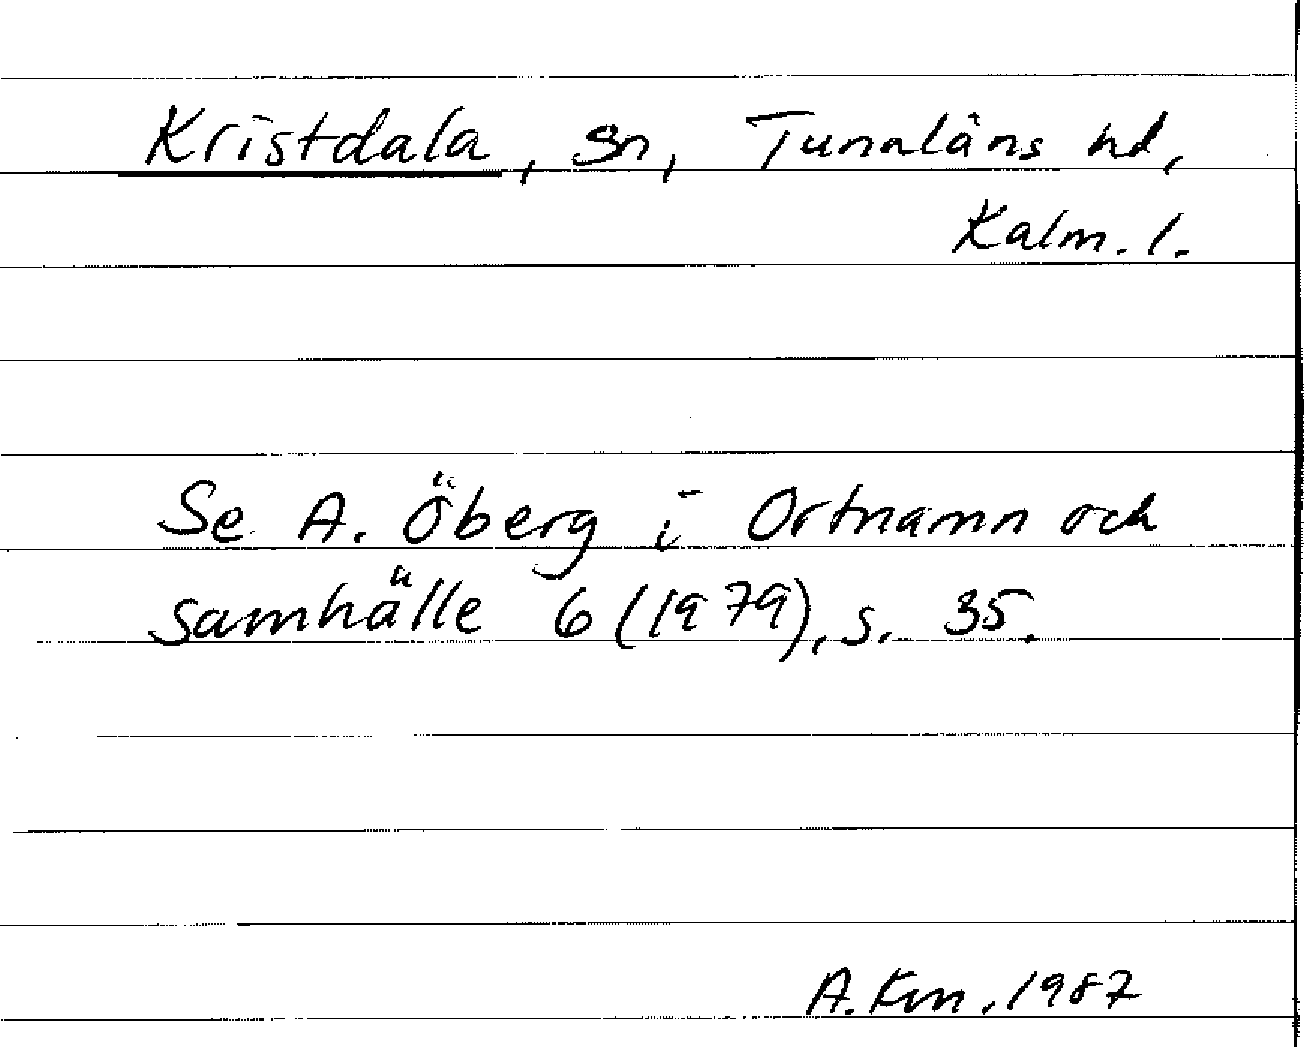 Kristdala, sn, Tunaläns hd,
Kalm. l.
Se A. Öberg i Ortnamn och
samhälle 6 (1979), s. 35.
A. Kvn. 1987